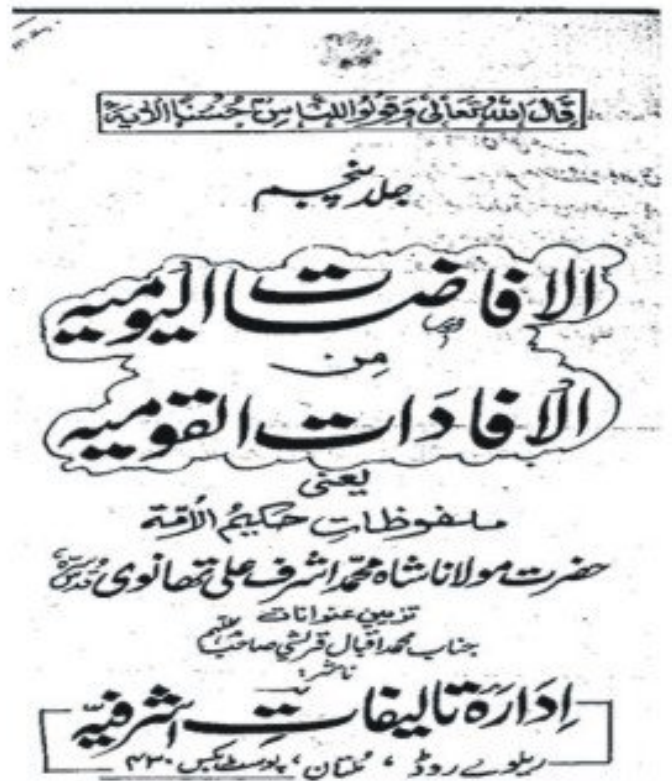 قَالَ اللهُ تَعَالٰى وَقُولُوا لِلنَّاسِ حُسْنًا الْاٰیَة
جلد پنجم
الافاضات الیومیہ
مِن
الافادات القومیہ
یعنی
ملفوظاتِ حکیم الاُمّۃ
حضرت مولانا شاہ محمّد اشرف علی تھانوی قدس سرہٗ
تزیین عنوانات
جناب محمد اقبال قریشی صاحب
ناشر:
اِدَارَہ تالیفاتِ اشرفیّہ
ریلوے روڈ، مُلتان، پوسٹ بکس ۴۳۰